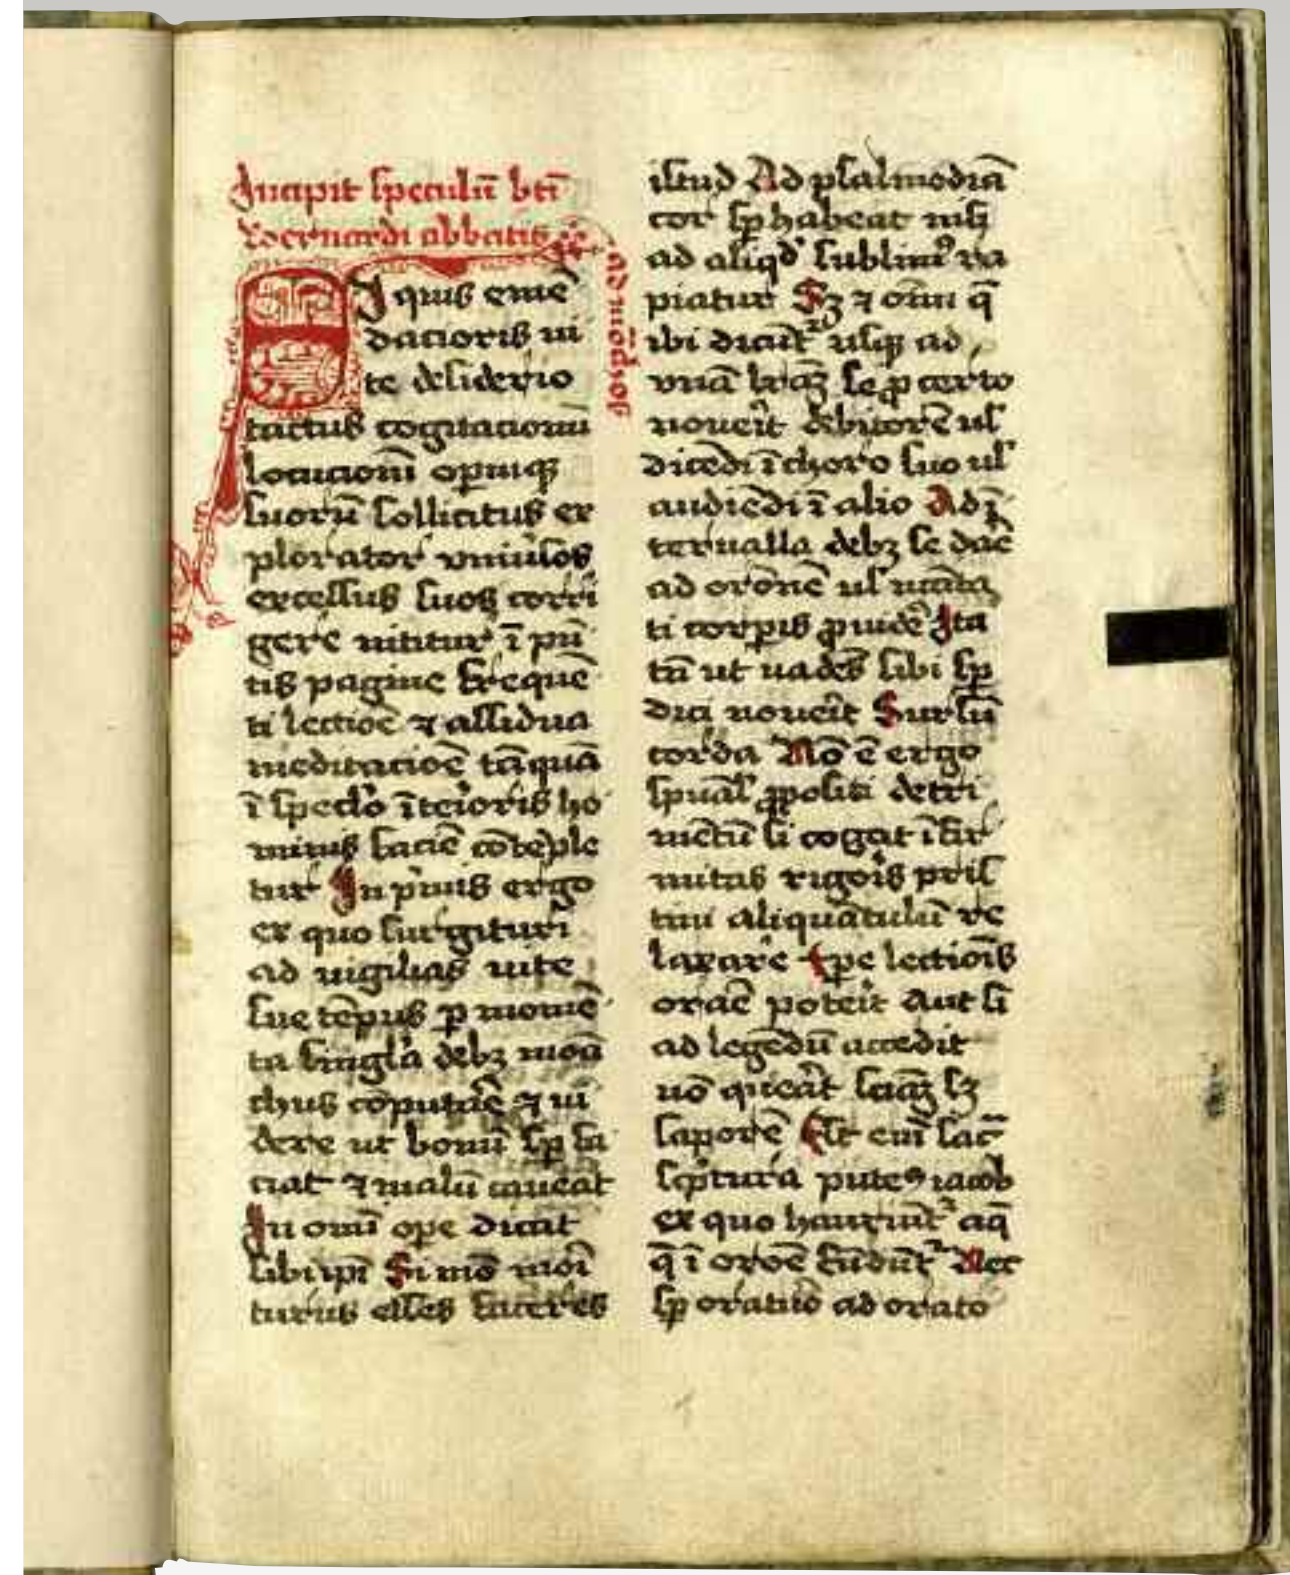 Incipit speculū bti
Bernardi abbatis
Iquis emē
dacioris ui
te desiderio
tactus cogitacionū
locucionū opumqꝫ
suorū sollicitus ex
plorator vniūsos
excessus suos corri
gere nititur ī pn̄
tis pagine frequē
ti lectiōe ⁊ assidua
meditacioē tāquā
ī speclo īteioris ho
minis faciē cōtēple
tur In pmis ergo
ex quo surgituri
ad uigilias uite
sue tēpus p momē
ta singla debꝫ mona
chus cōputare ⁊ ui
dere ut bonū sp fa
ciat ⁊ malū caueat
In omī ope dicat
sibi ipi Si mō mori
turus esses faceres
istud Ad psalmodiā
cor sp habeat nisi
ad aliqd sublimi9 ra
piatur Sꝫ ⁊ om̄i q̄
ibi dicūt usqꝫ ad
vnā lrāꝫ se p certo
nouerit debitorē ul
dicēdi ī choro suo ul
audiēdi ī alio Ad ī
terualla debꝫ se dare
ad orōnē ul
ti corpis puidē Ita
tn̄ ut uadēs sibi sp
dici nouerit Sursū
corda Nō ē ergo
spual ppositi detri
mētū si cogat īfir
mitas rigoris pris
tini aliquātulū re
laxare Tpe lectiōis
orare poterit Aut si
ad legēdū accedit
nō querat sciāꝫ sꝫ
saporē Est eni sac̄
scptura pute9 iacob
ex quo hauriūt aq̄
q̄ ī orōe fūdūt Nec
sp oratiō ad orato